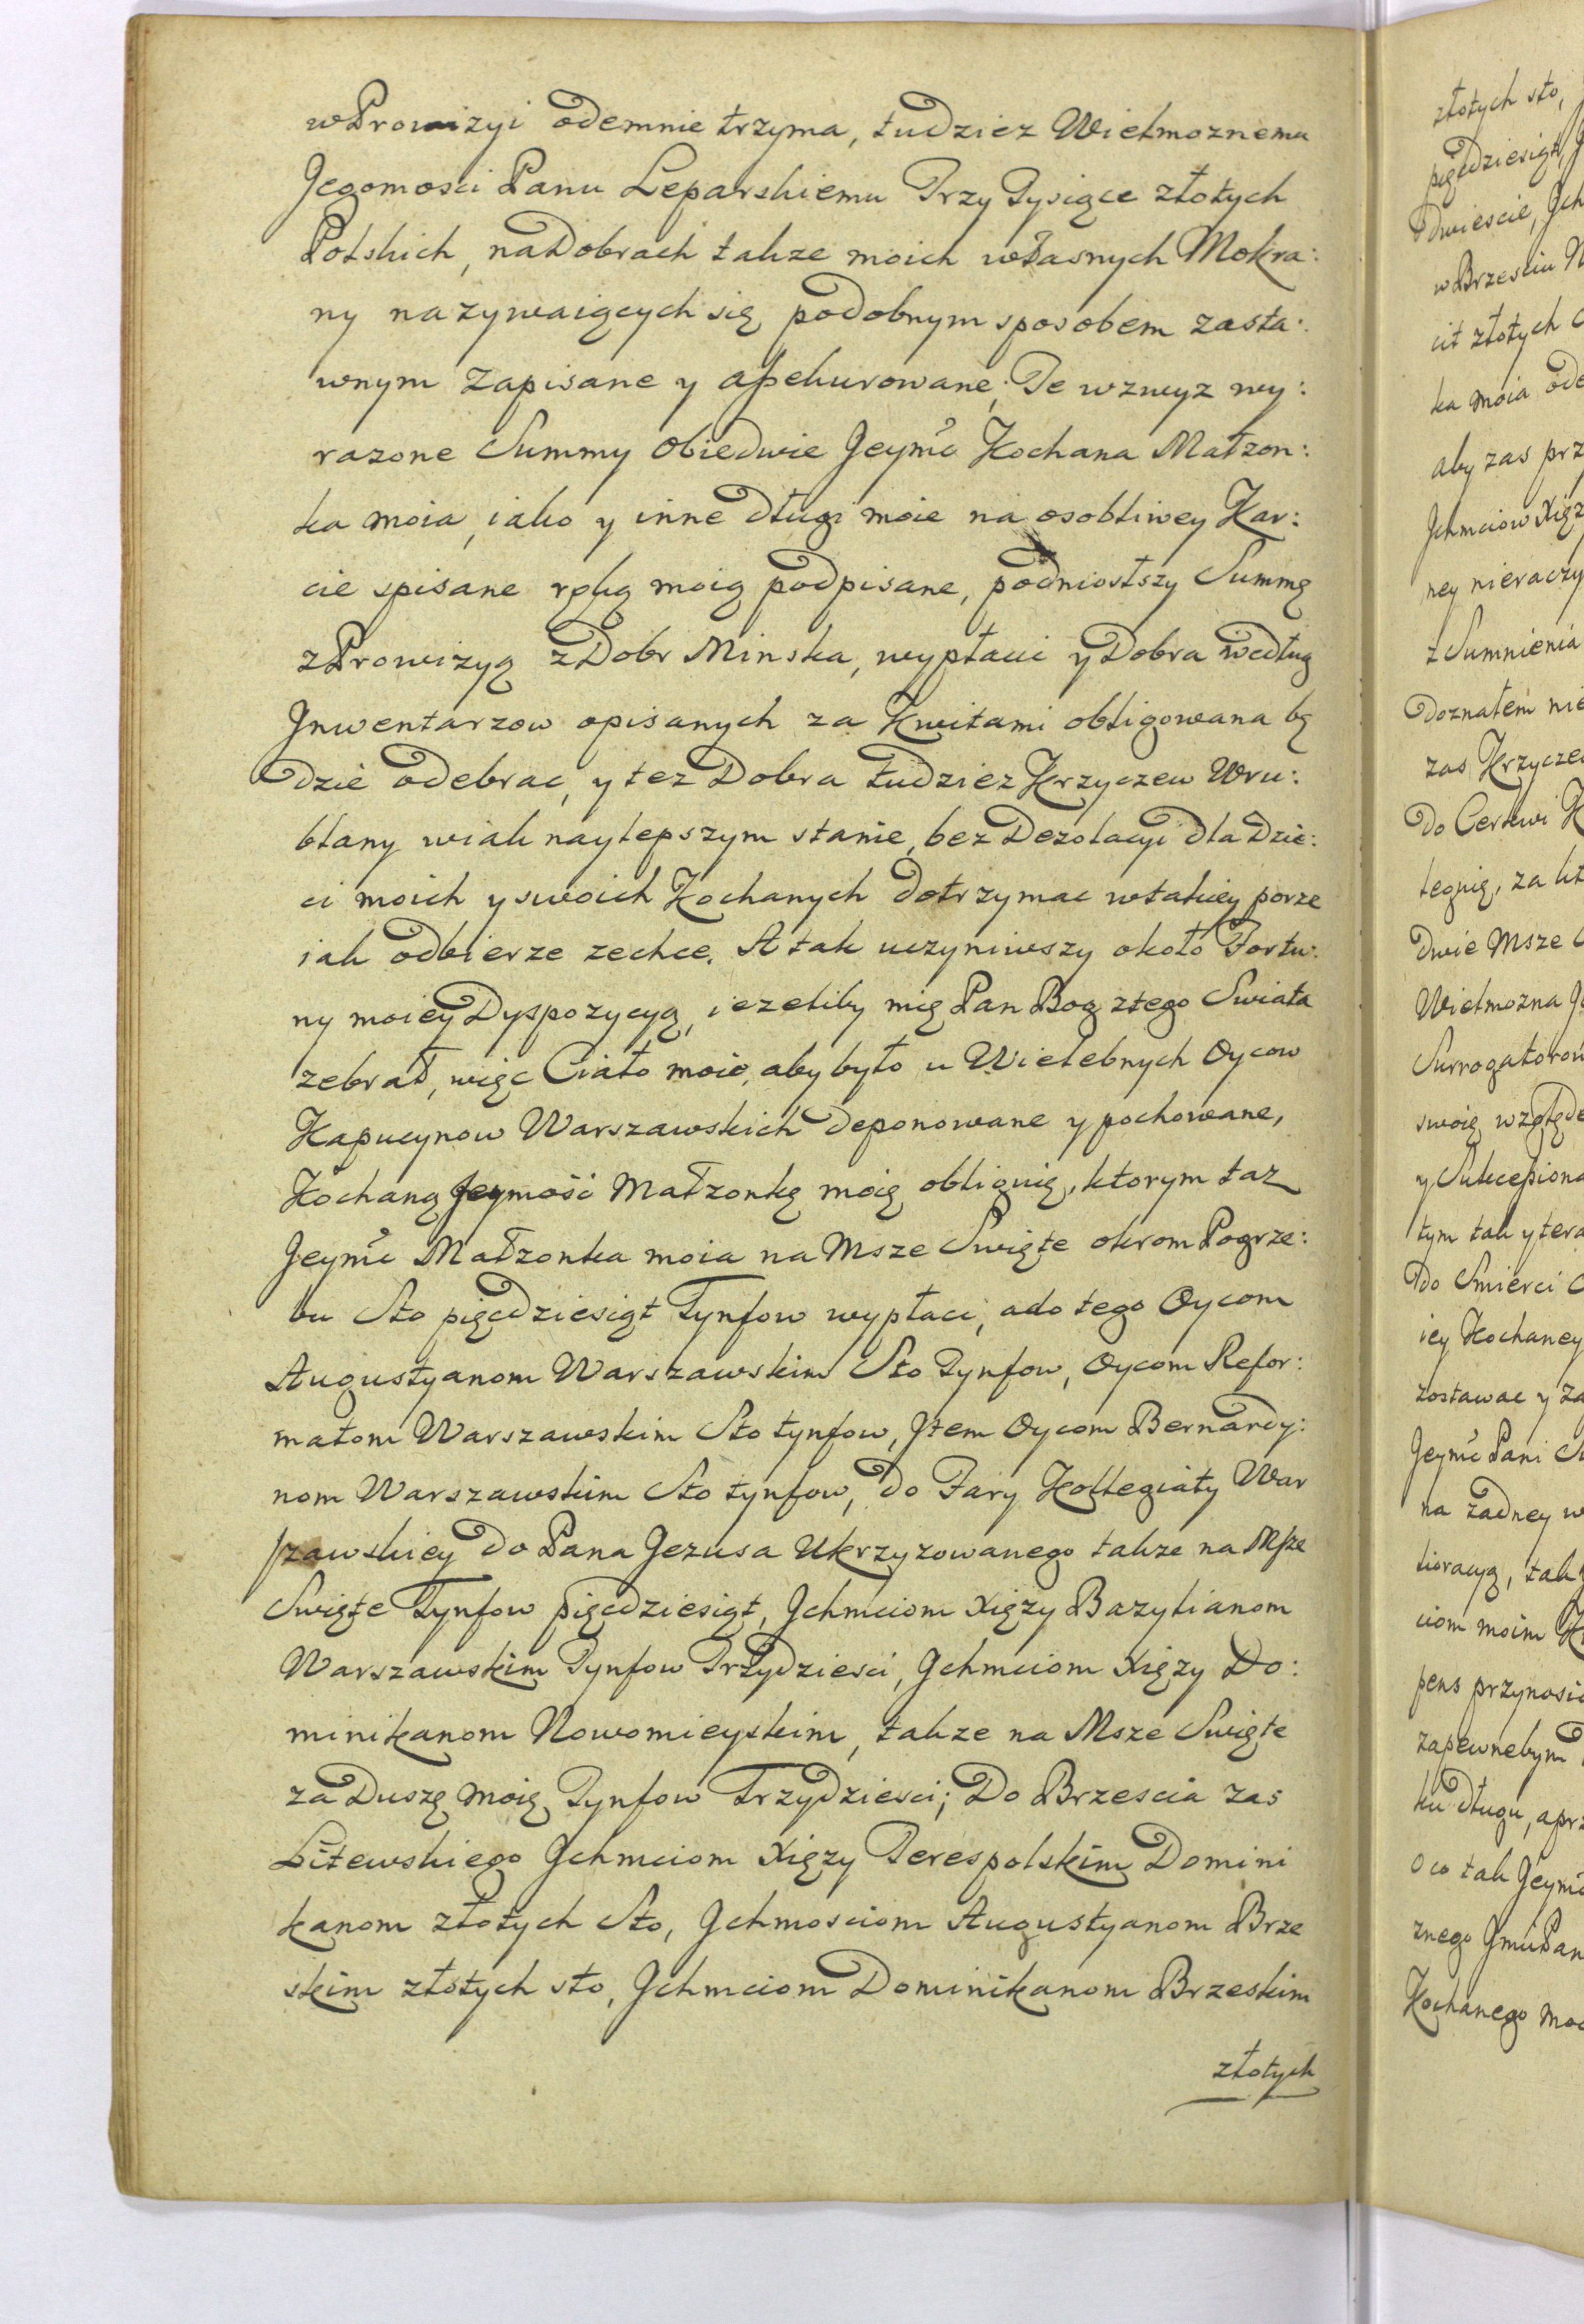 w Prowizyi odemnie trzyma, tudziez Wielmoznemu
Jegomosci Panu Leparskiemu Trzy Tysiące złotych
Polskich, na Dobrach takze moich własnych Mokra:
ny nazywaiących się podobnym sposobem zasta:
wnym zapisane y assekurowane; Te wzwyz wy:
razone Summy obiedwie Jeymć Kochana Małzon:
ka moia, iako y inne długi moie na osobliwey Kar:
cie spisane ręką moią podpisane, podniosłszy Summę
z Prowizyą z Dobr Minska, wypłaci y Dobra według
Jnwentarzow opisanych za Kwitami obligowana bę
dzie odebrac, y tez Dobra tudziez Krzyczew Wru:
blany w iak naylepszym stanie, bez Dezolacyi dla Dzie:
ci moich y swoich Kochanych dotrzymac w takiey porze
iak odbierze zechce. A tak uczyniwszy około Fortu:
ny moiey Dyspozycyą, iezeliby mię Pan Bog z tego Swiata
zebrał, więc Ciało moie, aby było u Wielebnych Oycow
Kapucynow Warszawskich deponowane y pochowane,
Kochaną Jeymość Małzonkę moię obliguię, ktorym taz
Jeymć Małzonka moia na Msze Swięte okrom Pogrze:
bu Sto pięcdziesiąt Tynfow wypłaci, a do tego Oycom
Augustyanom Warszawskim Sto Tynfow, Oycom Refor:
matom Warszawskim Sto tynfow, Jtem Oycom Bernardy:
nom Warszawskim Sto tynfow, do Fary Kollegiaty War
szawskiey do Pana Jezusa Ukrzyzowanego takze na Msze
Swięte Tynfow pięcdziesiąt, Jchmciom Xięzy Bazylianom
Warszawskim Tynfow Trzydziesci, Jchmciom Xięzy Do:
minikanom Nowomieyskim, takze na Msze Swięte
za Duszę moię Tynfow Trzydziesci; Do Brzescia zas
Litewskiego Jchmciom Xięzy Terespolskim Domini
kanom złotych Sto, Jchmosciom Augustyanom Brze
skim złotych sto, Jchmciom Dominikanom Brzeskim
złotych
złotych sto,
pięcdziesiąt,
dwiescie, Jch
w Brzesciu
cit złotych
ka moia ode
aby zas prz
Jchmciow Xięz
ney nieraczy
z Sumnienia
doznałem nie
zas Krzyczew
do Cerkwi K
legnię, za kt
dwie Msze
Wielmozna
Surrogatorow
swoię względ
y Sukcessiona
tym tak y tera
do Smierci
iey Kochaney
zostawac y za
Jeymć Pani
na zadney w
lioracyą, tak
ciom moim
pens przynosi
zapewnebym
ku długu, a prz
o co tak Jeymć
znego Jmci Pan
Kochanego mo